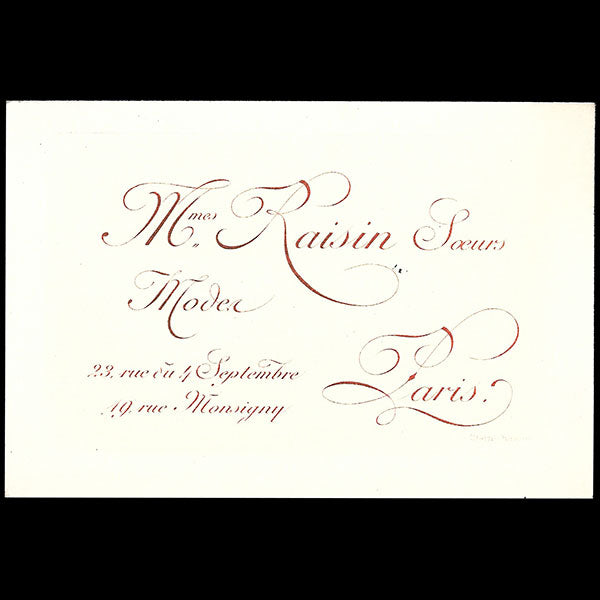 Mmes Raisin Sœurs
Modes
23, rue du 4 Septembre
19, rue Monsigny
Paris.